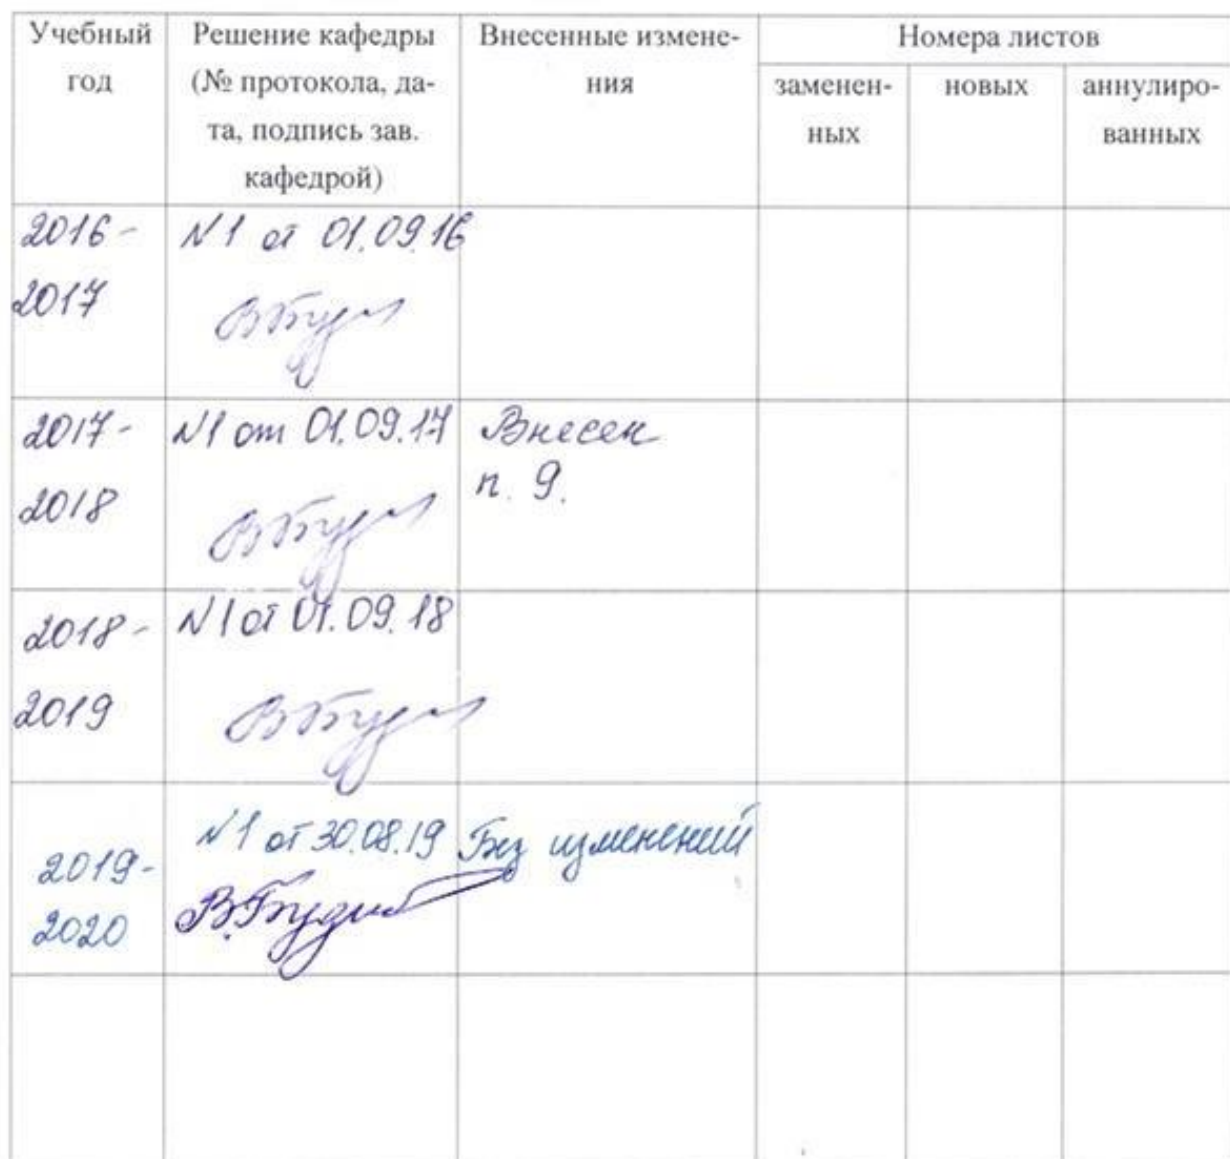 Учебный год
Решение кафедры
(№ протокола, да-
та, подпись зав.
кафедрой)
Внесенные измене-
ния
Номера листов
заменен-
ных
новых
аннулиро-
ванных
2016-
2017
N1 от 01.09.16
2017-
2018
N1 от 01.09.17
Внесен
п. 9.
2018-
2019
N1 от 01.09.18
2019-
2020
N1 от 30.08.19
Без изменений